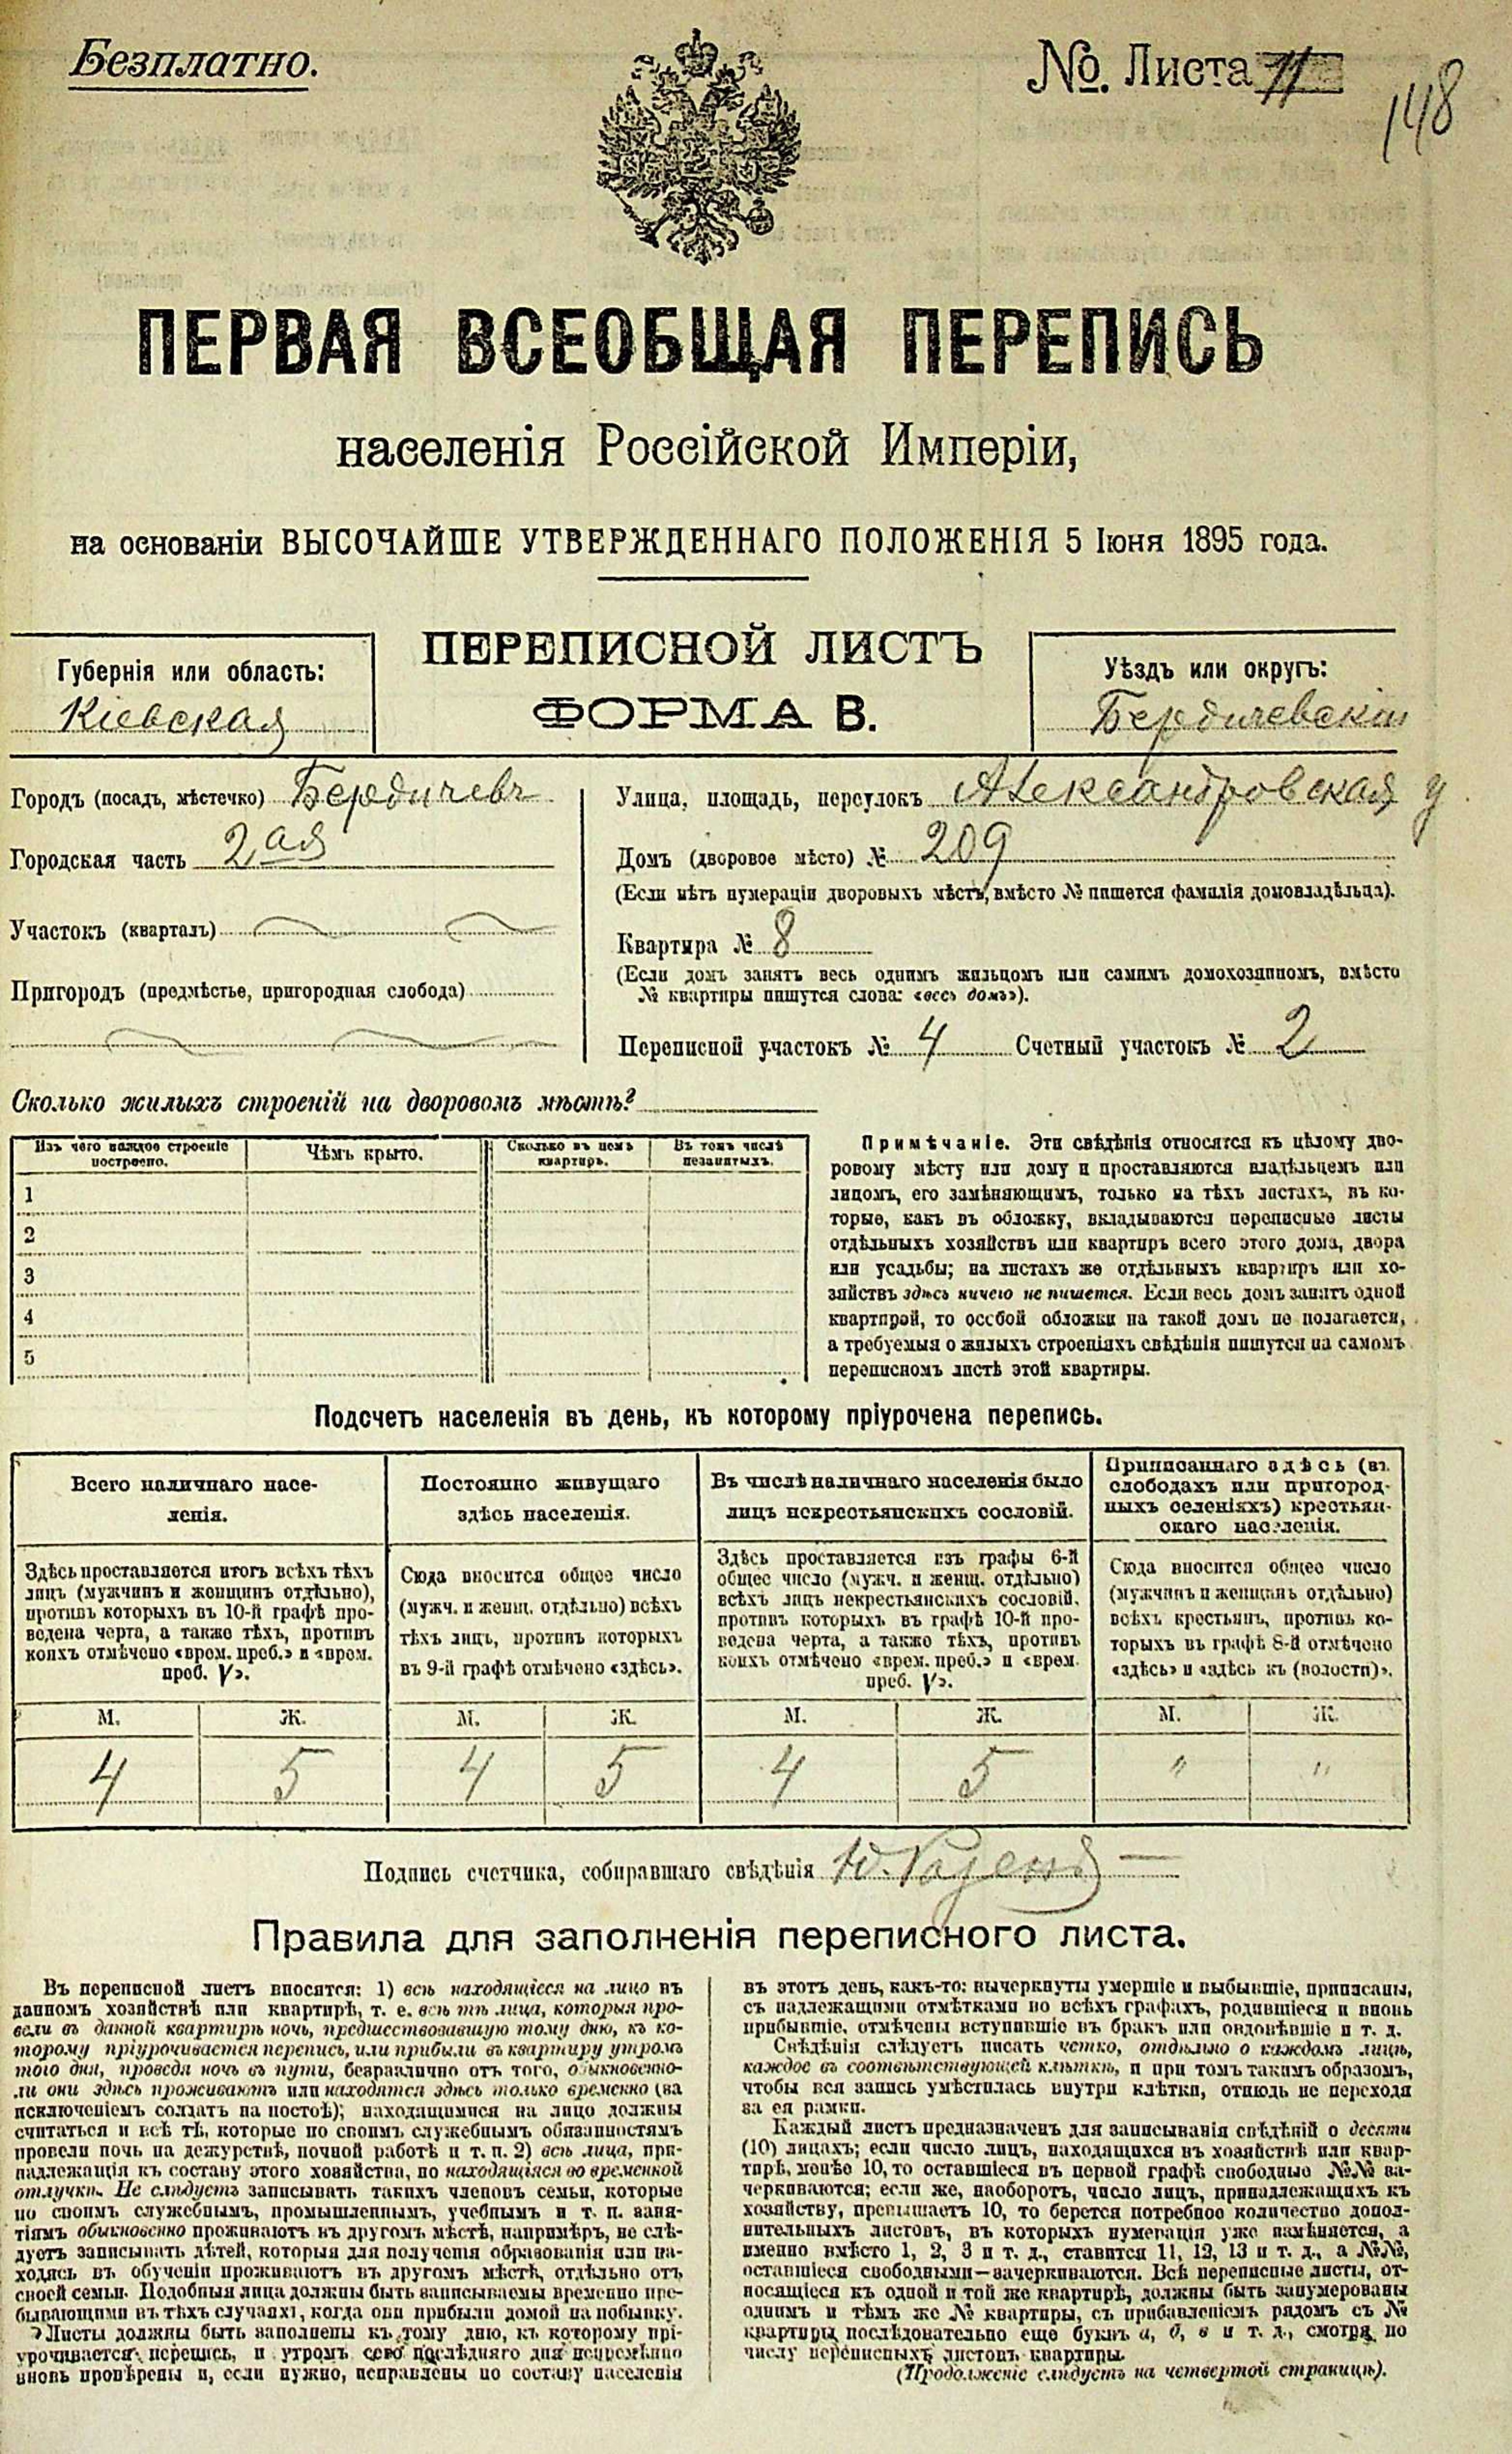 Безплатно.
№. Листа 11
148
ПЕРВАЯ ВСЕОБЩАЯ ПЕРЕПИСЬ
населенія Россійской Имперіи,
на основаніи ВЫСОЧАЙШЕ УТВЕРЖДЕННАГО ПОЛОЖЕНІЯ 5 Іюня 1895 года.
ПЕРЕПИСНОЙ ЛИСТЪ
ФОРМА В.
Губернія или область:
Кіевская
Уѣздъ или округъ:
Бердичевскій
Городъ (посадъ, мѣстечко) Бердичевъ
Городская часть 2ая
Участокъ (кварталъ)
Пригородъ (предмѣстье, пригородная слобода)
Улица, площадь, переулокъ Александровская у
Домъ (дворовое мѣсто) № 209
(Если нѣтъ нумераціи дворовыхъ мѣстъ, вмѣсто № пишется фамилія домовладѣльца).
Квартира № 8
(Если домъ занятъ весь однимъ жильцомъ или самимъ домохозяиномъ, вмѣсто
№ квартиры пишутся слова: «весь домъ»).
Переписной участокъ № 4 Счетный участокъ № 2
Сколько жилыхъ строеній на дворовомъ мѣстѣ?
Изъ чего каждое строеніе построено.
Чѣмъ крыто.
Сколько въ немъ квартиръ.
Въ томъ числѣ незанятыхъ.
1
2
3
4
5
Примѣчаніе. Эти свѣдѣнія относятся къ цѣлому дво-
ровому мѣсту или дому и проставляются владѣльцемъ или
лицомъ, его замѣняющимъ, только на тѣхъ листахъ, въ ко-
торые, какъ въ обложку, вкладываются переписные листы
отдѣльныхъ хозяйствъ или квартиръ всего этого дома, двора
или усадьбы; на листахъ же отдѣльныхъ квартиръ или хо-
зяйствъ здѣсь ничего не пишется. Если весь домъ занятъ одной
квартирой, то особой обложки на такой домъ не полагается,
а требуемыя о жилыхъ строеніяхъ свѣдѣнія пишутся на самомъ
переписномъ листѣ этой квартиры.
Подсчетъ населенія въ день, къ которому пріурочена перепись.
Всего наличнаго насе-
ленія.
Постоянно живущаго
здѣсь населенія.
Въ числѣ наличнаго населенія было
лицъ некрестьянскихъ сословій.
Приписаннаго здѣсь (въ
слободахъ или пригород-
ныхъ селеніяхъ) крестьян-
скаго населенія.
Здѣсь проставляется итогъ всѣхъ тѣхъ
лицъ (мужчинъ и женщинъ отдѣльно),
противъ которыхъ въ 10-й графѣ про-
ведена черта, а также тѣхъ, противъ
коихъ отмѣчено «врем. преб.» и «врем.
преб. V».
Сюда вносится общее число
(мужч. и женщ. отдѣльно) всѣхъ
тѣхъ лицъ, противъ которыхъ
въ 9-й графѣ отмѣчено «здѣсь».
Здѣсь проставляется изъ графы 6-й
общее число (мужч. и женщ. отдѣльно)
всѣхъ лицъ некрестьянскихъ сословій,
противъ которыхъ въ графѣ 10-й про-
ведена черта, а также тѣхъ, противъ
коихъ отмѣчено «врем. преб.» и «врем.
преб. V».
Сюда вносится общее число
(мужчинъ и женщинъ отдѣльно)
всѣхъ крестьянъ, противъ ко-
торыхъ въ графѣ 8-й отмѣчено
«здѣсь» и «здѣсь къ (волости)».
М. Ж. М. Ж. М. Ж. М. Ж.
4 5 4 5 4 5 " "
Подпись счетчика, собиравшаго свѣдѣнія
Правила для заполненія переписного листа.
Въ переписной листъ вносятся: 1) всѣ находящіеся на лицо въ
данномъ хозяйствѣ или квартирѣ, т. е. всѣ тѣ лица, которыя про-
вели въ данной квартирѣ ночь, предшествовавшую тому дню, къ ко-
торому пріурочивается перепись, или прибыли въ квартиру утромъ
того дня, проведя ночь въ пути, безразлично отъ того, обыкновенно-
ли они здѣсь проживаютъ или находятся здѣсь только временно (за
исключеніемъ солдатъ на постоѣ); находящимися на лицо должны
считаться и всѣ тѣ, которые по своимъ служебнымъ обязанностямъ
провели ночь на дежурствѣ, ночной работѣ и т. п. 2) всѣ лица, при-
надлежащія къ составу этого хозяйства, но находящіяся во временной
отлучкѣ. Не слѣдуетъ записывать такихъ членовъ семьи, которые
по своимъ служебнымъ, промышленнымъ, учебнымъ и т. п. заня-
тіямъ обыкновенно проживаютъ въ другомъ мѣстѣ, напримѣръ, не слѣ-
дуетъ записывать дѣтей, которыя для полученія образованія или на-
ходясь въ обученіи проживаютъ въ другомъ мѣстѣ, отдѣльно отъ
своей семьи. Подобныя лица должны быть записываемы временно пре-
бывающими въ тѣхъ случаяхъ, когда они прибыли домой на побывку.
Листы должны быть заполнены къ тому дню, къ которому прі-
урочивается перепись, и утромъ сего послѣдняго дня непремѣнно
вновь провѣрены и, если нужно, исправлены по составу населенія
въ этотъ день, какъ-то: вычеркнуты умершіе и выбывшіе, приписаны,
съ надлежащими отмѣтками во всѣхъ графахъ, родившіеся и вновь
прибывшіе, отмѣчены вступившіе въ бракъ или овдовѣвшіе и т. д.
Свѣдѣнія слѣдуетъ писать четко, отдѣльно о каждомъ лицѣ,
каждое въ соотвѣтствующей клѣткѣ, и при томъ такимъ образомъ,
чтобы вся запись умѣстилась внутри клѣтки, отнюдь не переходя
за ея рамки.
Каждый листъ предназначенъ для записыванія свѣдѣній о десяти
(10) лицахъ; если число лицъ, находящихся въ хозяйствѣ или квар-
тирѣ, менѣе 10, то оставшіеся въ первой графѣ свободные №№ за-
черкиваются; если же, наоборотъ, число лицъ, принадлежащихъ къ
хозяйству, превышаетъ 10, то берется потребное количество допол-
нительныхъ листовъ, въ которыхъ нумерація уже измѣняется, а
именно вмѣсто 1, 2, 3 и т. д., ставится 11, 12, 13 и т. д., а №№,
оставшіеся свободными—зачеркиваются. Всѣ переписные листы, от-
носящіеся къ одной и той же квартирѣ, должны быть занумерованы
однимъ и тѣмъ же № квартиры, съ прибавленіемъ рядомъ съ №
квартиры послѣдовательно еще буквъ а, б, в и т. д., смотря по
числу переписныхъ листовъ квартиры.
(Продолженіе слѣдуетъ на четвертой страницѣ).